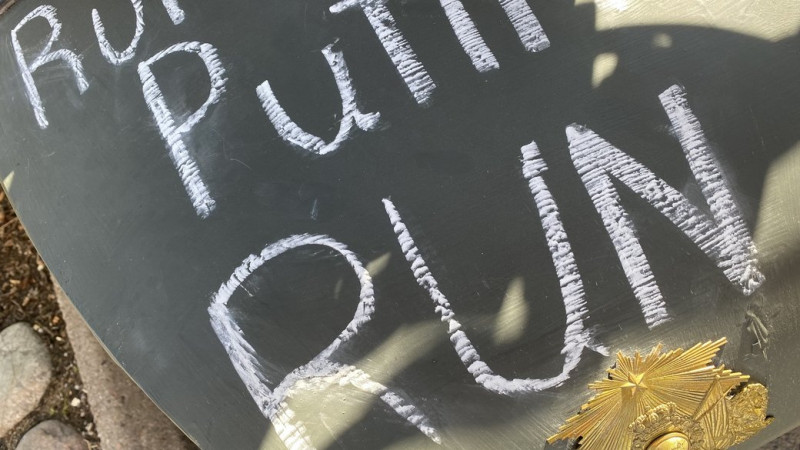 RuN
PuTIN
RUN